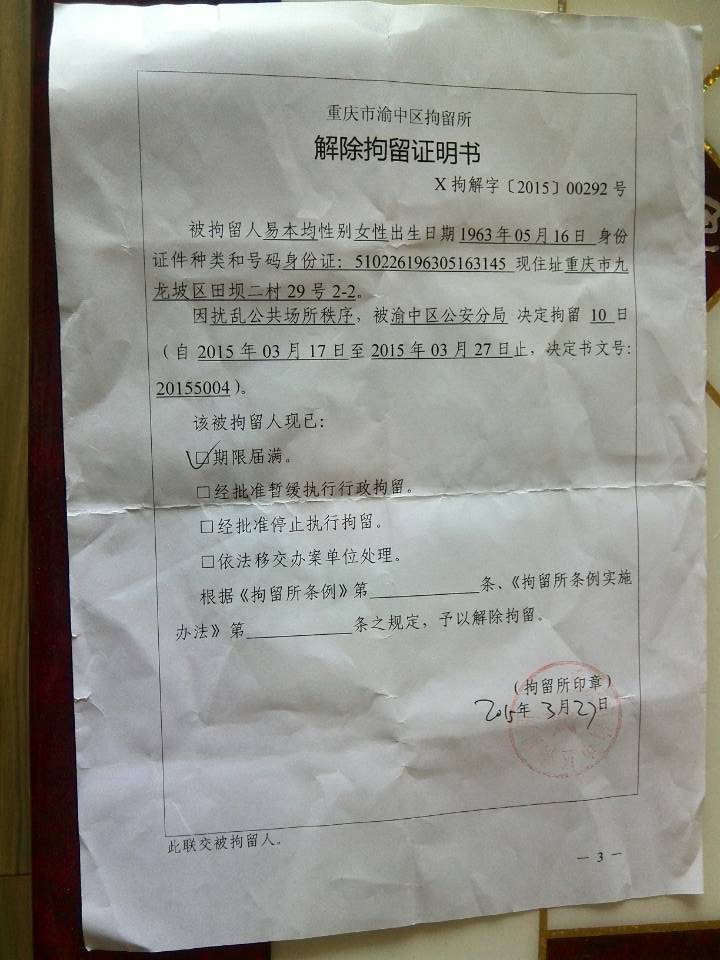 重庆市渝中区拘留所
解除拘留证明书
X 拘解字〔2015〕00292 号
被拘留人易本均性别女性出生日期 1963 年 05 月 16 日 身份
证件种类和号码身份证：510226196305163145 现住址重庆市九
龙坡区田坝二村 29 号 2-2。
因扰乱公共场所秩序，被渝中区公安分局 决定拘留 10 日
（自 2015 年 03 月 17 日至 2015 年 03 月 27 日止，决定书文号：
20155004）。
该被拘留人现已：
☑期限届满。
□经批准暂缓执行行政拘留。
□经批准停止执行拘留。
□依法移交办案单位处理。
根据《拘留所条例》第____________条、《拘留所条例实施
办法》第____________条之规定，予以解除拘留。
（拘留所印章）
2015年 3月27日
此联交被拘留人。
— 3 —